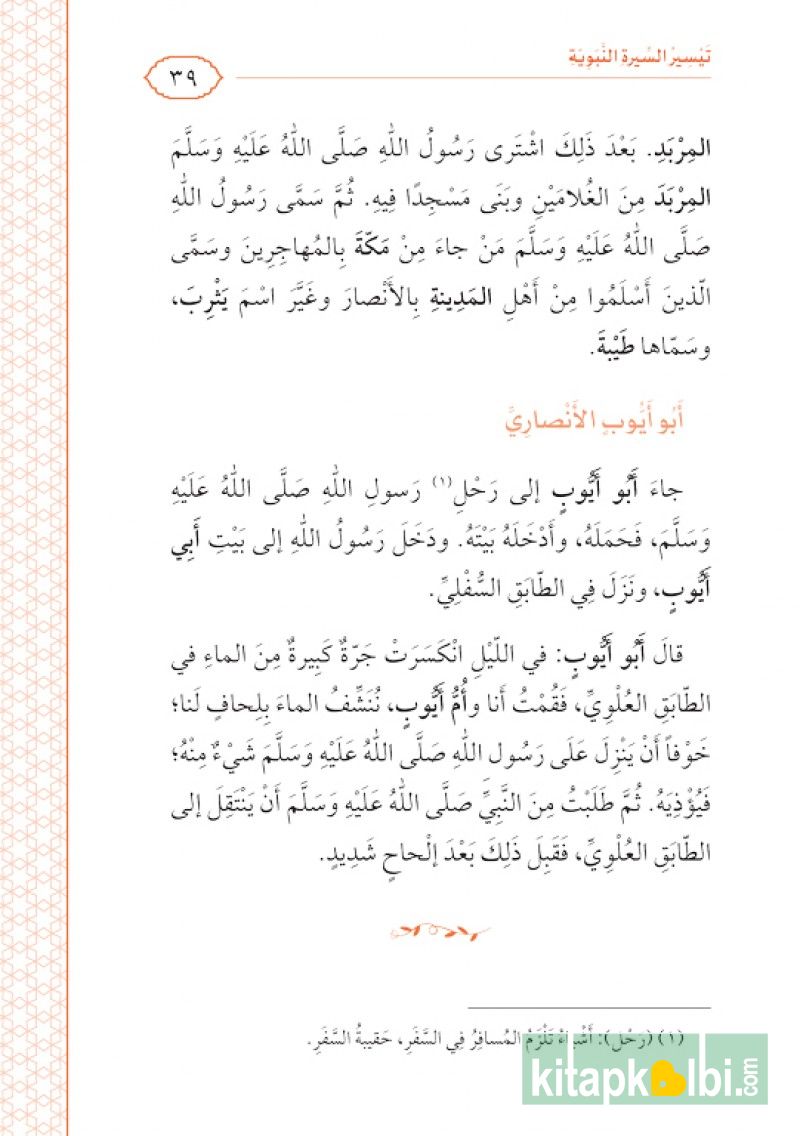 تَيْسِيرُ السِّيرةِ النَّبَوِيَّةِ
٣٩
المِرْبَدِ. بَعْدَ ذَلِكَ اشْتَرى رَسُولُ اللهِ صَلَّى اللهُ عَلَيْهِ وَسَلَّمَ
المِرْبَدَ مِنَ الغُلامَيْنِ وبَنَى مَسْجِدًا فِيهِ. ثُمَّ سَمَّى رَسُولُ اللهِ
صَلَّى اللهُ عَلَيْهِ وَسَلَّمَ مَنْ جاءَ مِنْ مَكّةَ بِالمُهاجِرِينَ وسَمَّى
الّذينَ أَسْلَمُوا مِنْ أَهْلِ المَدِينةِ بِالأَنْصارَ وغَيَّرَ اسْمَ يَثْرِبَ،
وسَمّاها طَيْبةَ.
أَبُو أَيُّوبٍ الأَنْصارِيِّ
جاءَ أَبُو أَيُّوبٍ إلى رَحْلِ(١) رَسولِ اللهِ صَلَّى اللهُ عَلَيْهِ
وَسَلَّمَ، فَحَمَلَهُ، وأَدْخَلَهُ بَيْتَهُ. ودَخَلَ رَسُولُ اللهِ إلى بَيْتِ أَبِي
أَيُّوبٍ، ونَزَلَ فِي الطّابَقِ السُّفْلِيِّ.
قالَ أَبُو أَيُّوبٍ: في اللّيْلِ انْكَسَرَتْ جَرّةٌ كَبِيرةٌ مِنَ الماءِ في
الطّابَقِ العُلْوِيِّ، فَقُمْتُ أَنا وأُمُّ أَيُّوبٍ، نُنَشِّفُ الماءَ بِلِحافٍ لَنا؛
خَوْفاً أَنْ يَنْزِلَ عَلَى رَسُول اللهِ صَلَّى اللهُ عَلَيْهِ وَسَلَّمَ شَيْءٌ مِنْهُ؛
فَيُؤْذِيَهُ. ثُمَّ طَلَبْتُ مِنَ النَّبِيِّ صَلَّى اللهُ عَلَيْهِ وَسَلَّمَ أَنْ يَنْتَقِلَ إلى
الطّابَقِ العُلْوِيِّ، فَقَبِلَ ذَلِكَ بَعْدَ إلْحاحٍ شَدِيدٍ.
(١) (رَحْل): أَشْياءُ تَلْزَمُ المُسافِرُ فِي السَّفَرِ، حَقيبةُ السَّفَرِ.
kitapkalbi.com